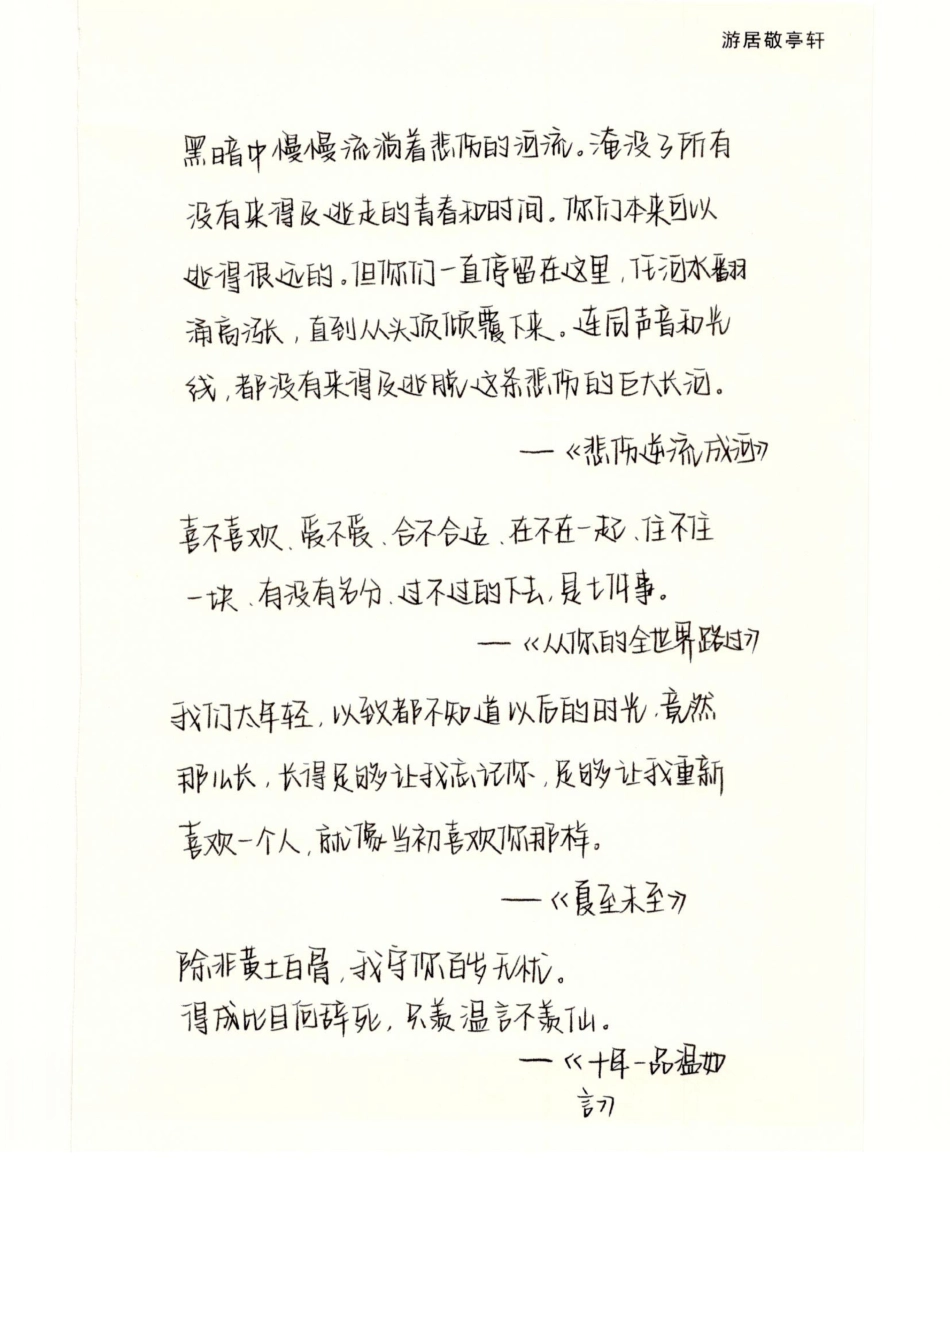 游居敬亭轩
黑暗中慢慢流淌着悲伤的河流。淹没了所有
没有来得及逃走的青春和时间。你们本来可以
逃得很远的。但你们一直停留在这里,任河水翻
涌高涨,直到从头顶倾覆下来。连同声音和光
线,都没有来得及逃脱这条悲伤的巨大长河。
—《悲伤逆流成河》
喜不喜欢、爱不爱、合不合适、在不在一起、住不住
一块、有没有名分、过不过的下去,是七件事。
—《从你的全世界路过》
我们太年轻,以致都不知道以后的时光,竟然
那么长,长得足够让我忘记你,足够让我重新
喜欢一个人,就像当初喜欢你那样。
—《夏至未至》
除非黄土白骨,我守你百岁无忧。
得成比目何辞死,只羡温言不羡仙。
—《十年一品温如
言》